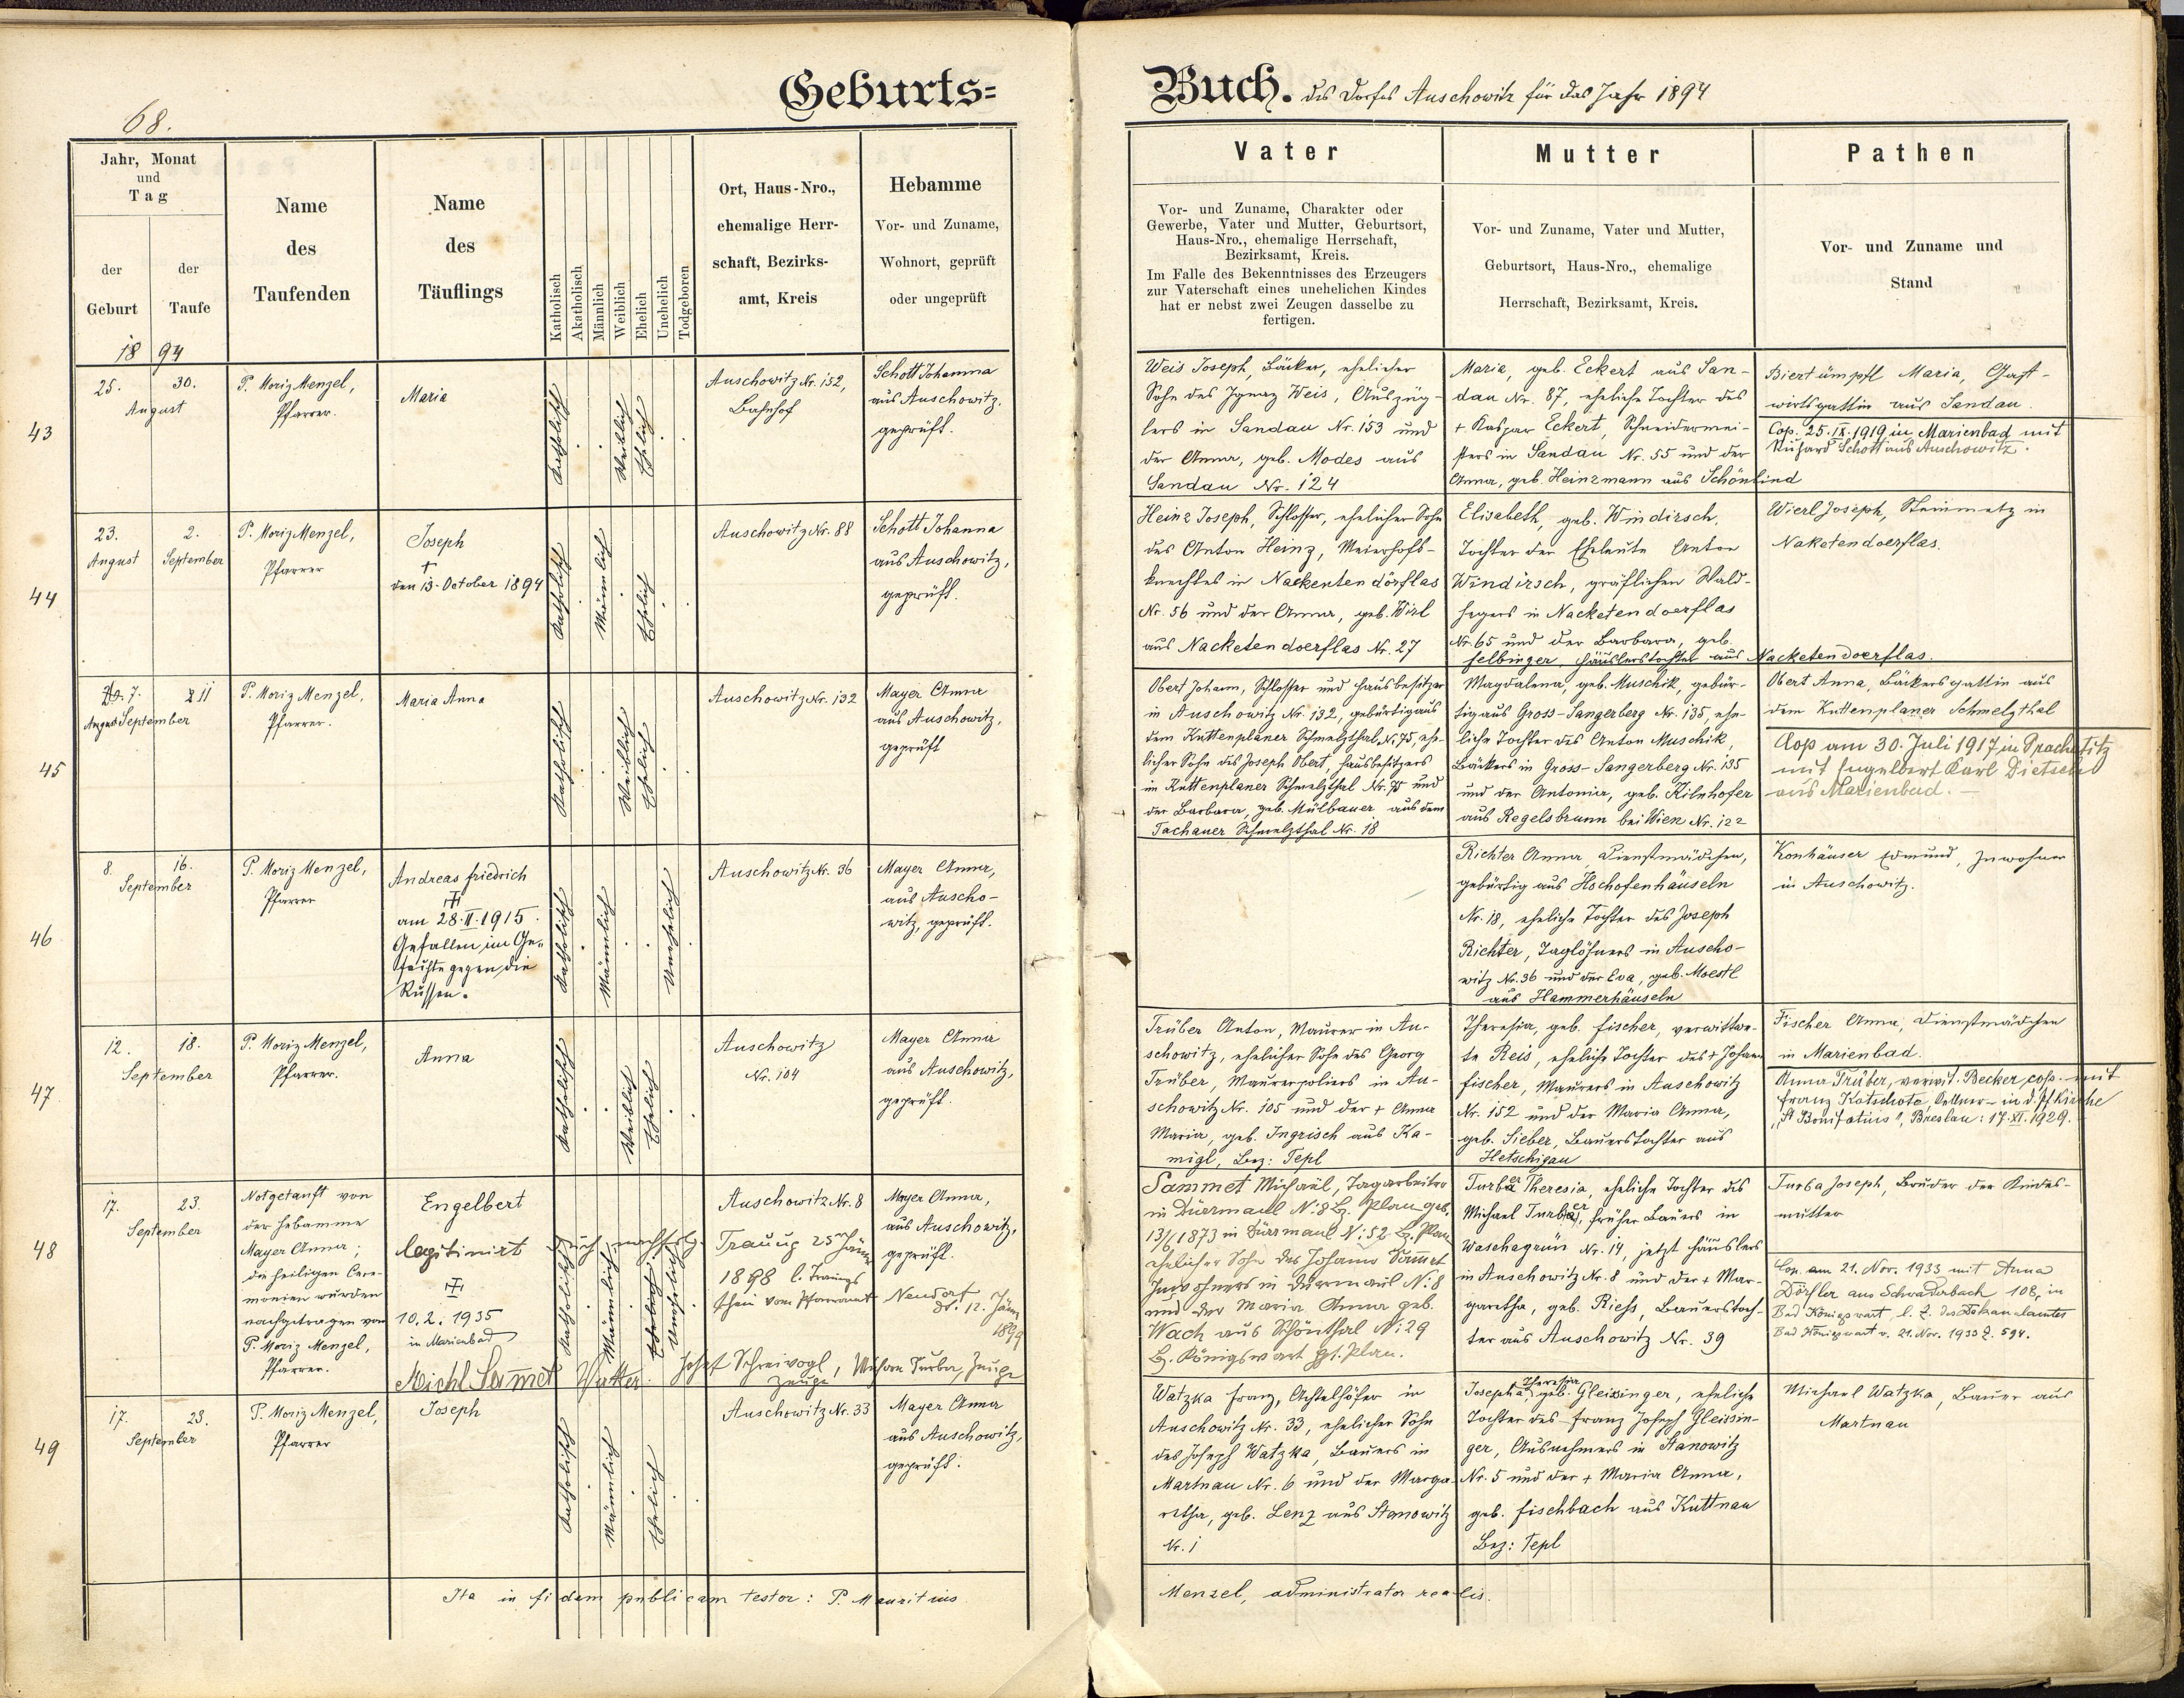 Geburts=
Buch. des Dorfes Auschowitz für das Jahr 1894
68.
Jahr, Monat
und
Tag
der
Geburt
der
Taufe
Name
des
Taufenden
Name
des
Täuflings
Katholisch
Akatholisch
Männlich
Weiblich
Ehelich
Unehelich
Todgeboren
Ort, Haus-Nro.,
ehemalige Herr-
schaft, Bezirks-
amt, Kreis
Hebamme
Vor- und Zuname,
Wohnort, geprüft
oder ungeprüft
Vater
Vor- und Zuname, Charakter oder
Gewerbe, Vater und Mutter, Geburtsort,
Haus-Nro., ehemalige Herrschaft,
Bezirksamt, Kreis.
Im Falle des Bekenntnisses des Erzeugers
zur Vaterschaft eines unehelichen Kindes
hat er nebst zwei Zeugen dasselbe zu
fertigen.
Mutter
Vor- und Zuname, Vater und Mutter,
Geburtsort, Haus-Nro., ehemalige
Herrschaft, Bezirksamt, Kreis.
Pathen
Vor- und Zuname und
Stand
1894
43
25. 30.
August
P. Moriz Menzel,
Pfarrer.
Maria
Katholisch
Weiblich
Ehelich
Auschowitz Nr. 152,
Bahnhof
Schott Johanna
aus Auschowitz,
geprüft.
Weis Joseph, Bäcker, ehelicher
Sohn des Ignaz Weis, Auszüg-
lers in Sandau Nr. 153 und
der Anna, geb. Modes aus
Sandau Nr. 124
Maria, geb. Eckert aus San-
dau Nr. 87, eheliche Tochter des
+ Kaspar Eckert, Schneidermei-
sters in Sandau Nr. 55 und der
Anna, geb. Heinzmann aus Schönlind
Biertümpfl Maria, Gast-
wirtsgattin aus Sandau.
Cop. 25.IX.1919 in Marienbad mit
Richard Schott aus Auschowitz.
44
23. 2.
August September
P. Moriz Menzel,
Pfarrer
Joseph
+
den 13. October 1894
Katholisch
Männlich
Ehelich
Auschowitz Nr. 88
Schott Johanna
aus Auschowitz,
geprüft.
Heinz Joseph, Schlosser, ehelicher Sohn
des Anton Heinz, Meierhofs-
knechtes in Nackentendörflas
Nr. 56 und der Anna, geb. Wirl
aus Nacketendoerflas Nr. 27
Elisabeth, geb. Windirsch,
Tochter der Eheleute Anton
Windirsch, gräflichen Wald-
hegers in Nacketendoerflas
Nr. 65 und der Barbara, geb.
Felbinger, Häuslerstochter aus Nacketendoerflas.
Wierl Joseph, Steinmetz in
Naketendoerflas.
45
7. 11
August September
P. Moriz Menzel,
Pfarrer.
Maria Anna
Katholisch
Weiblich
Ehelich
Auschowitz Nr. 132
Mayer Anna
aus Auschowitz,
geprüft
Obert Johann, Schlosser und Hausbesitzer
in Auschowitz Nr. 132, gebürtig aus
dem Kuttenplaner Schmelzthal Nr. 75, ehe-
licher Sohn des Joseph Obert, Hausbesitzers
im Kuttenplaner Schmelzthal Nr. 75 und
der Barbara, geb. Mülbauer aus dem
Tachauer Schmelzthal Nr. 18
Magdalena, geb. Muschik, gebür-
tig aus Gross-Sangerberg Nr. 135, ehe-
liche Tochter des Anton Muschik,
Bäckers in Gross-Sangerberg Nr. 135
und der Antonia, geb. Kilnhofer
aus Regelsbrunn bei Wien Nr. 122
Obert Anna, Bäckersgattin aus
dem Kuttenplaner Schmelzthal
Cop am 30. Juli 1917 in Prachatitz
mit Engelbert Karl Dietsch
aus Marienbad.
46
8. 16.
September
P. Moriz Menzel,
Pfarrer
Andreas Friedrich
+
am 28.II.1915.
Gefallen im Ge-
fechte gegen die
Russen.
Katholisch
Männlich
Unehelich
Auschowitz Nr. 36
Mayer Anna,
aus Auscho-
witz, geprüft.
Richter Anna, Dienstmädchen,
gebürtig aus Hochofenhäuseln
Nr. 18, eheliche Tochter des Joseph
Richter, Taglöhners in Auscho-
witz Nr. 36 und der Eva, geb. Moestl
aus Hammerhäuseln
Konhäuser Edmund, Inwohner
in Auschowitz.
47
12. 18.
September
P. Moriz Menzel,
Pfarrer.
Anna
Katholisch
Weiblich
Ehelich
Auschowitz
Nr. 104
Mayer Anna
aus Auschowitz,
geprüft.
Trüber Anton, Maurer in Au-
schowitz, ehelicher Sohn des Georg
Trüber, Maurerpoliers in Au-
schowitz Nr. 105 und der + Anna
Maria, geb. Ingrisch aus Ka-
migl, Bez: Tepl
Theresia, geb. Fischer, verwittwe-
te Reis, eheliche Tochter des + Johann
Fischer, Maurers in Auschowitz
Nr. 152 und der Maria Anna,
geb. Sieber, Bauerstochter aus
Hetschigau
Fischer Anna, Dienstmädchen
in Marienbad.
Anna Trüber, verwit. Becker, cop. mit
Franz Kotschote, Kellner - in d. Pfkirche
"St Bonifatius", Breslau: 17.XI.1929.
48
17. 23.
September
Notgetauft von
der Hebamme
Mayer Anna;
die heiligen Cere-
monien wurden
nachgetragen von
P. Moriz Menzel,
Pfarrer.
Engelbert
legitimirt durch nachfolg.
+
10.2.1935
in Marienbad
Katholisch
Männlich
Ehelich
Unehelich
Auschowitz Nr. 8
Trauung 25ten Jänner
1898 l. Trauungs
schein vom Pfarramt Neudorf
dt. 12. Jänn
1899
Mayer Anna,
aus Auschowitz,
geprüft.
Michl Sammet Vatter. Josef Schreivogl, Zeuge
Michael Turba, Zeuge
Sammet Michael, Tagarbeiter
in Dürrmaul N: 8 B. Plan geb.
13/6 1873 in Dürrmaul N: 52 B. Plan
ehelicher Sohn des Johann Sammet
Inwohners in Dürrmaul N: 8
und der Maria Anna geb.
Wach aus Schönthal N: 29
B. Königswart Bz. Plan.
Turba Theresia, eheliche Tochter des
Michael Turba, früher Bauers in
Waschagrün Nr. 14, jetzt Häuslers
in Auschowitz Nr. 8 und der + Mar-
garetha, geb. Riess, Bauerstoch-
ter aus Auschowitz Nr. 39
Turba Joseph, Bruder der Kindes-
mutter
Cop. am 21. Nov. 1933 mit Anna
Dörfler aus Schwaderbach 108, in
Bad Königswart, l. Z. des Dekanalamtes
Bad Königswart v. 21. Nov. 1933 Z. 594.
49
17. 23.
September
P. Moriz Menzel,
Pfarrer
Joseph
Katholisch
Männlich
Ehelich
Auschowitz Nr. 33
Mayer Anna
aus Auschowitz,
geprüft.
Watzka Franz, Achtelhöfer in
Auschowitz Nr. 33, ehelicher Sohn
des Joseph Watzka, Bauers in
Martnau Nr. 6 und der Marga-
retha, geb. Lenz aus Stanowitz
Nr. 1
Josepha Theresia, geb. Gleisinger, eheliche
Tochter des Franz Joseph Gleissin-
ger, Ausnehmers in Stanowitz
Nr. 5 und der + Maria Anna,
geb. Fischbach aus Kuttnau
Bez: Tepl
Michael Watzka, Bauer aus
Martnau
Ita in fidem publicam testor: P. Mauritius
Menzel, administrator realis.